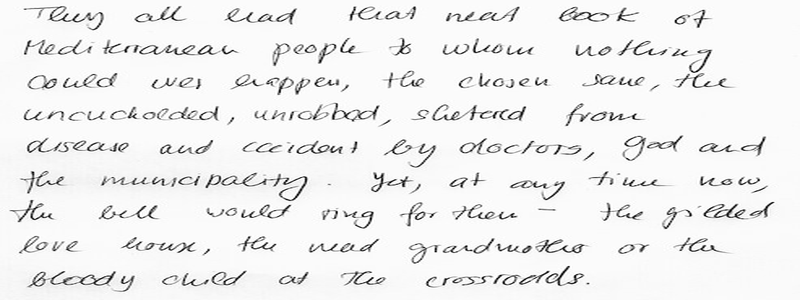 They all had that neat look of
Mediterranean people to whom nothing
could ever happen, the chosen sane, the
uncuckolded, unrobbed, sheltered from
disease and accident by doctors, God and
the municipality. Yet, at any time now,
the bell would ring for them - the gilded
love house, the mad grandmother or the
bloody child at the crossroads.